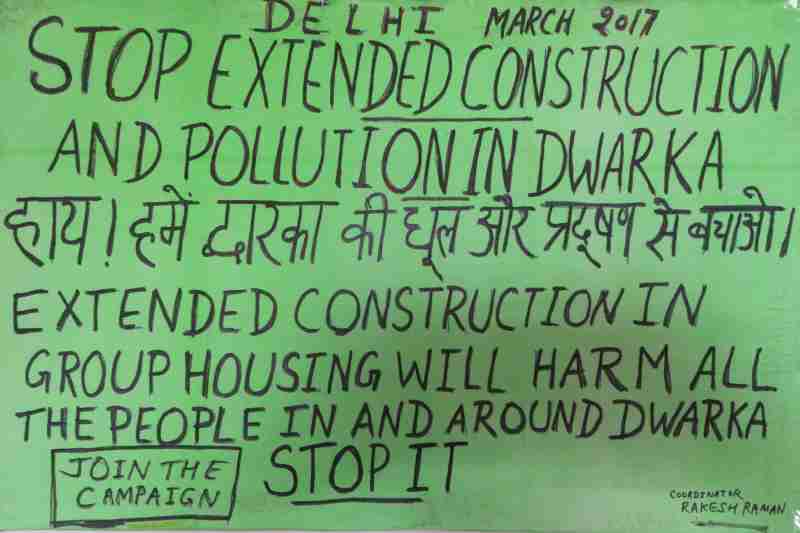 DELHI MARCH 2017
STOP EXTENDED CONSTRUCTION
AND POLLUTION IN DWARKA
हाय! हमें द्वारका की धूल और प्रदूषण से बचाओ।
EXTENDED CONSTRUCTION IN
GROUP HOUSING WILL HARM ALL
THE PEOPLE IN AND AROUND DWARKA
STOP IT
JOIN THE
CAMPAIGN
COORDINATOR
RAKESH RAMAN